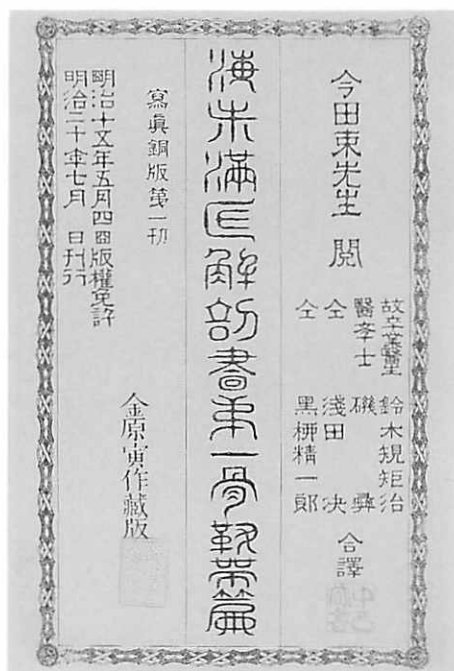 今田束先生 閲
故卒業醫生 鈴木規矩治
醫學士 磯 彝
仝 淺田 决
仝 黑柳精一郎
合譯
海朱滿氏解剖書第一骨靱帶篇
寫眞銅版第一刊
明治十五年五月四日版權免許
明治二十年七月 日刊行
金原寅作藏版